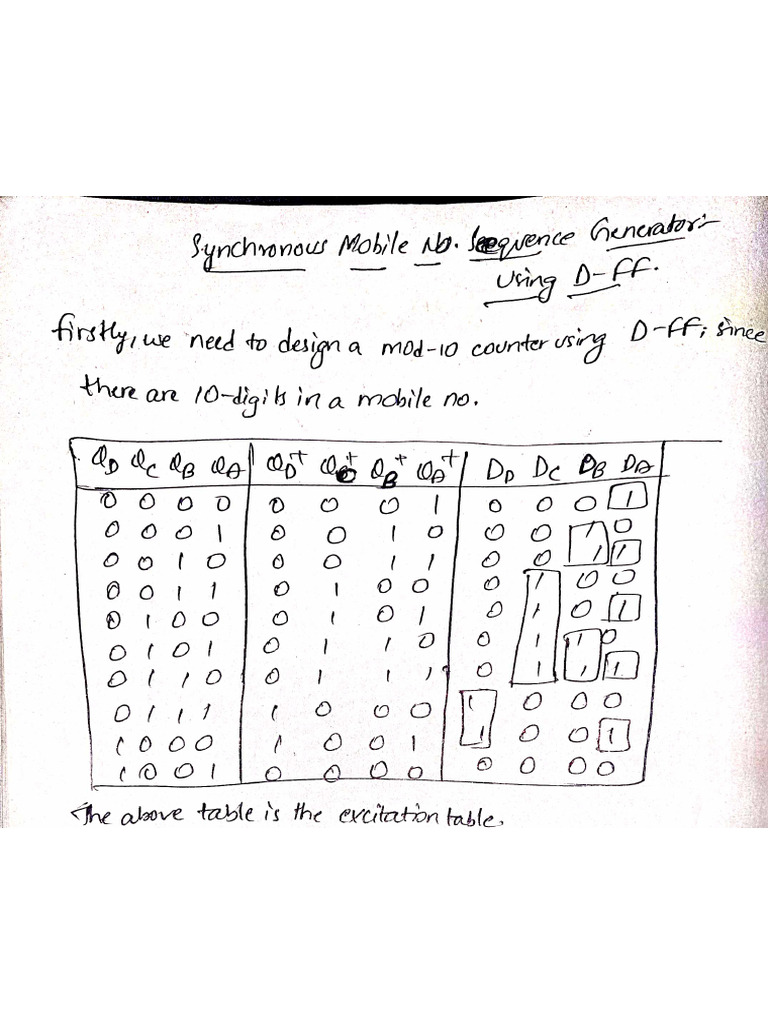 Synchronous Mobile No. Sequence Generator:-
Using D-FF.
firstly, we need to design a mod-10 counter using D-FF; since
there are 10-digits in a mobile no.
QD QC QB QA QD+ QC+ QB+ QA+ DD DC DB DA
0 0 0 0 0 0 0 1 0 0 0 1
0 0 0 1 0 0 1 0 0 0 1 0
0 0 1 0 0 0 1 1 0 0 1 1
0 0 1 1 0 1 0 0 0 1 0 0
0 1 0 0 0 1 0 1 0 1 0 1
0 1 0 1 0 1 1 0 0 1 1 0
0 1 1 0 0 1 1 1 0 1 1 1
0 1 1 1 1 0 0 0 1 0 0 0
1 0 0 0 1 0 0 1 1 0 0 1
1 0 0 1 0 0 0 0 0 0 0 0
The above table is the excitation table.